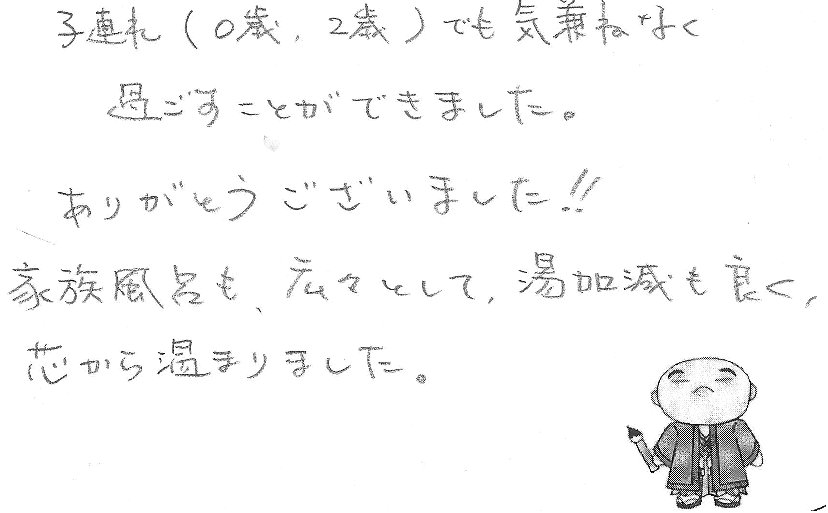 子連れ(0歳、2歳)でも気兼ねなく
過ごすことができました。
ありがとうございました!!
家族風呂も、広々として、湯加減も良く、
芯から温まりました。